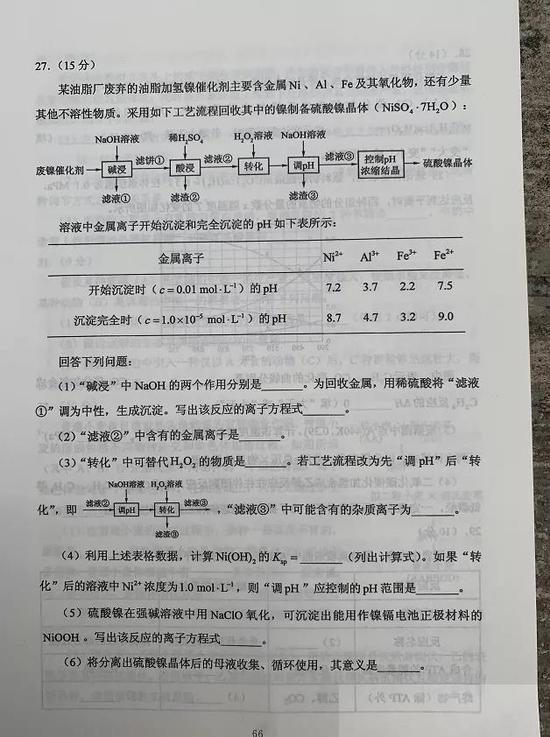 27.(15分)
某油脂厂废弃的油脂加氢镍催化剂主要含金属Ni、Al、Fe及其氧化物,还有少量
其他不溶性物质。采用如下工艺流程回收其中的镍制备硫酸镍晶体(NiSO₄·7H₂O):
NaOH溶液 稀H₂SO₄ H₂O₂溶液 NaOH溶液
废镍催化剂 碱浸 滤饼① 酸浸 滤液② 转化 调pH 滤液③ 控制pH 浓缩结晶 硫酸镍晶体
滤液① 滤渣② 滤渣③
溶液中金属离子开始沉淀和完全沉淀的pH如下表所示:
金属离子 Ni²⁺ Al³⁺ Fe³⁺ Fe²⁺
开始沉淀时(c=0.01 mol·L⁻¹)的pH 7.2 3.7 2.2 7.5
沉淀完全时(c=1.0×10⁻⁵ mol·L⁻¹)的pH 8.7 4.7 3.2 9.0
回答下列问题:
(1)“碱浸”中NaOH的两个作用分别是______。为回收金属,用稀硫酸将“滤液
①”调为中性,生成沉淀。写出该反应的离子方程式______。
(2)“滤液②”中含有的金属离子是______。
(3)“转化”中可替代H₂O₂的物质是______。若工艺流程改为先“调pH”后“转
NaOH溶液 H₂O₂溶液
化”,即 滤液② 调pH 转化 滤液③ ,“滤液③”中可能含有的杂质离子为______。
滤渣③
(4)利用上述表格数据,计算Ni(OH)₂的Ksp=______(列出计算式)。如果“转
化”后的溶液中Ni²⁺浓度为1.0 mol·L⁻¹,则“调pH”应控制的pH范围是______。
(5)硫酸镍在强碱溶液中用NaClO氧化,可沉淀出能用作镍镉电池正极材料的
NiOOH。写出该反应的离子方程式______。
(6)将分离出硫酸镍晶体后的母液收集、循环使用,其意义是______。
66